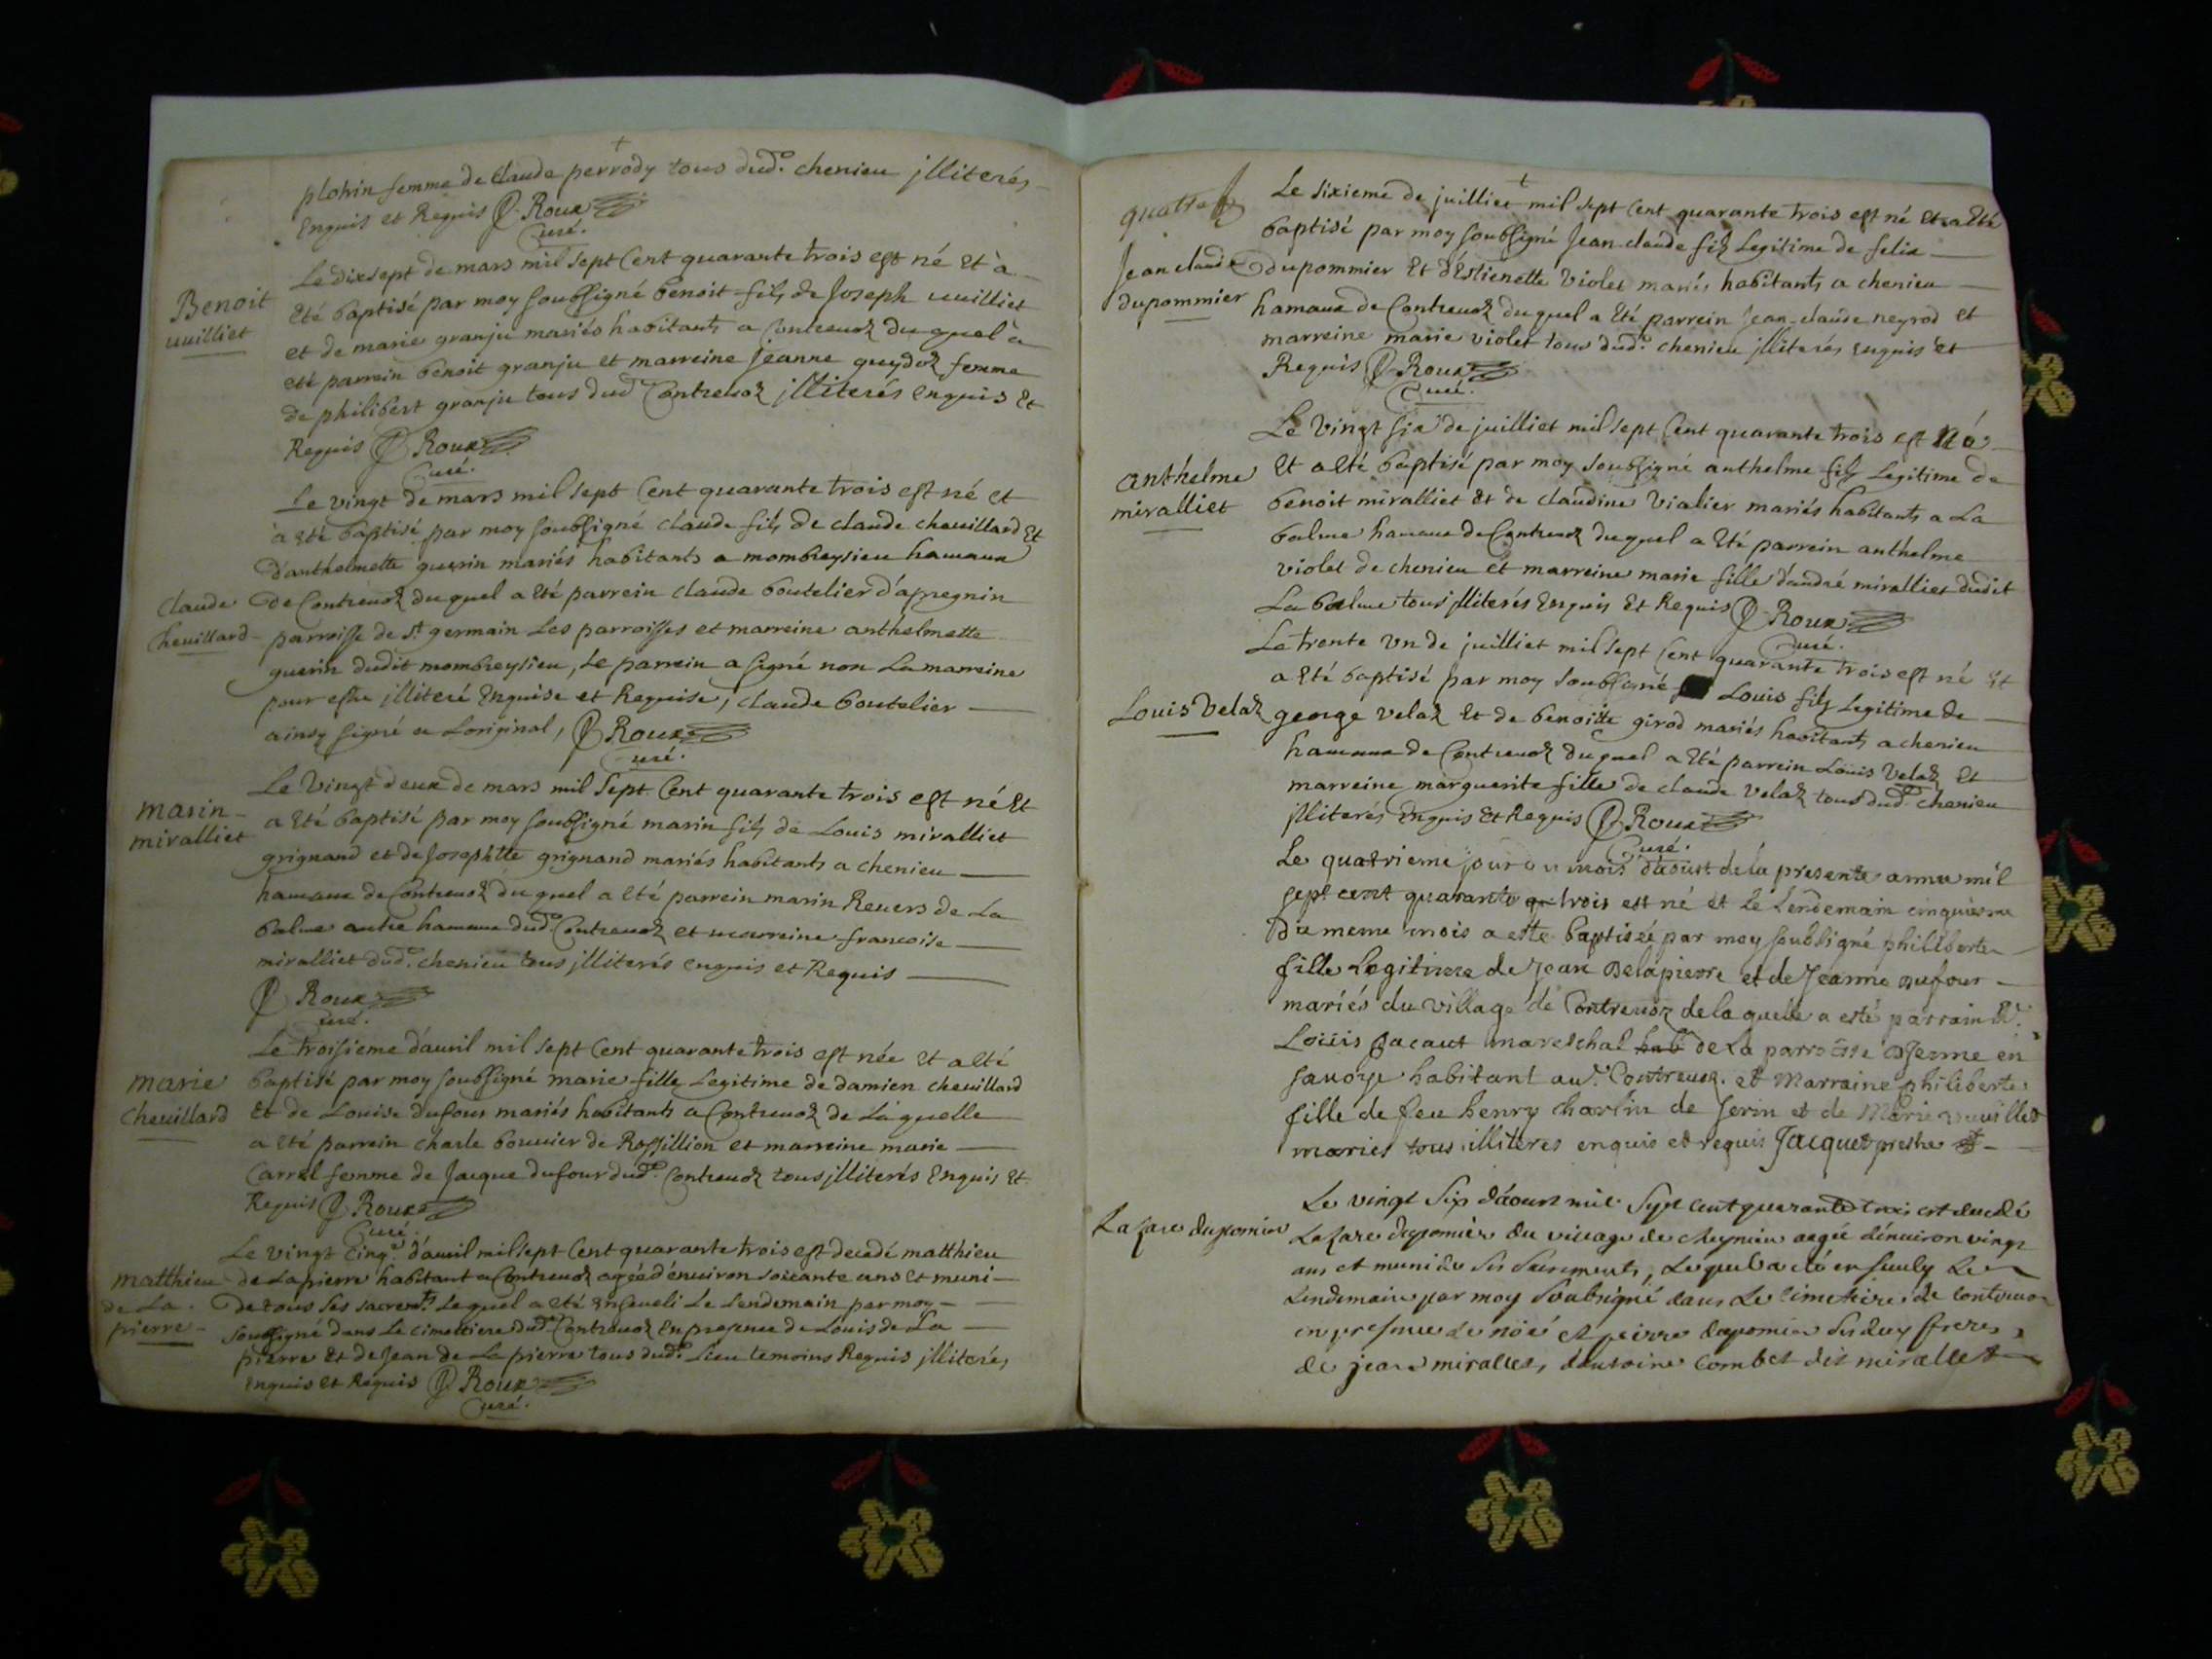 plohin femme de Claude perrody tous dud.° chenieu jlliterés
Enquis et Requis P. Roux
Curé.
Benoit
vuilliet
Le dixsept de mars mil sept Cent quarante trois est né Et à
Eté baptisé par moy soubsigné benoit fils de Joseph vuilliet
et de marie granju mariés habitants a Contrevoz duquel à
eté parrein benoit granju et marreine jeanne guydoz femme
de philibert granju tous dud.° Contrevoz jlliterés Enquis Et
Requis P. Roux
Curé.
Claude
Chevillard
Le vingt de mars mil sept Cent quarante trois est né et
à Eté baptisé par moy soubsigné claude fils de claude chevillard Et
d'anthelmette guerin mariés habitants a mombreysieu hamaux
de Contrevoz duquel a Eté parrein claude boutelier d'apregnin
parroisse de s.t germain Les parroisses et marreine anthelmette
guerin dudit mombreysieu, Le parrein a signé non La marreine
pour estre jlliteré Enquise et Requise, claude boutelier
ainsy signé a Loriginal, P. Roux
Curé.
marin
miralliet
Le Vingt deux de mars mil sept Cent quarante trois est né Et
a Eté baptisé par moy soubsigné marin fils de Louis miralliet
grignand et de Josephtte grignand mariés habitants a chenieu
hamaux de Contrevoz duquel a Eté parrein marin Revers de La
balme autre hamaux dud.° Contrevoz et marreine francoise
miralliet dud.° chenieu tous jlliterés enquis et Requis
P. Roux
Curé.
marie
chevillard
Le troisieme d'avril mil sept Cent quarante trois est née Et a Eté
baptisé par moy soubsigné marie fille Legitime de damien chevillard
Et de Louise dufour mariés habitants a Contrevoz de Laquelle
a Eté parrein charle bouvier de Rossillion et marreine marie
Carrel femme de Jacque dufour dud.° Contrevoz tous jlliterés Enquis Et
Requis P. Roux
Curé.
matthieu
de La
pierre
Le Vingt Cinq.e d'avril mil sept Cent quarante trois est decedé matthieu
de Lapierre habitant a Contrevoz agée d'environ soixante ans et muni
de tous ses sacrem.ts Lequel a eté Enseveli Le Lendemain par moy
soubsigné dans Le cimettiere dud.° Contrevoz En presence de Louis de La
pierre Et de Jean de La pierre tous dud.° Lieu temoins Requis jlliterés
enquis et Requis P. Roux
Curé.
Jean claude
dupommier
Le sixieme de juilliet mil sept Cent quarante trois est né Et a Eté
baptisé par moy soubsigné Jean claude fils Legitime de felix
dupommier Et d'Estienette Violet mariés habitants a chenieu
hamaux de Contrevoz duquel a Eté parrein Jean claude neyrod et
marreine marie violet tous dud.° chenieu jlliterés Enquis et
Requis P. Roux
Curé.
anthelme
miralliet
Le Vingt six de juilliet mil sept Cent quarante trois est Né
Et a Eté baptisé par moy soubsigné anthelme fils Legitime de
benoit miralliet Et de claudine Vialier mariés habitants a La
balme hamaux de Contrevoz duquel a Eté parrein anthelme
violet de chenieu et marreine marie fille d'andré miralliet dudit
La balme tous jlliterés Enquis Et Requis P. Roux
Curé.
Louis Velaz
Le trente Un de juilliet mil sept Cent quarante trois est né Et
a Eté baptisé par moy soubsigné Louis fils Legitime de
george velaz Et de benoitte girod mariés habitants a chenieu
hamaux de Contrevoz duquel a Eté parrein Louis Velaz Et
marreine marguerite fille de claude velaz tous dud.° chenieu
jlliterés Enquis Et Requis P. Roux
Curé.
Le quatrieme jour du mois d'aoust de la presente année mil
sept cent quarante trois est né et le Lendemain cinquiesme
du meme mois a esté baptizée par moy soubsigné philiberte
fille Legitime de Jean Delapierre et de Jeanne Dufour
mariés du village de Contrevoz de la quelle a esté parrain
Loüis pacaut mareschal de La parroisse en
savoye habitant aud.° Contrevoz. et Marraine philiberte
fille de feu henry charlin de Serin et de Marie vuillet
mariés tous illiteres enquis et requis Jacquet prestre
Lasare dupomier
Le vingt Six d'aoust mil Sept cent quarante trois est decedé
Lasare dupomier du village de cheynieu aagé d'environ vingt
ans et muni de ses Sacrements, Lequel a eté ensevely Le
Lendemain par moy Soubsigné dans Le cimettiere de Contrevoz
en presence de noié et peirre dupomier ses deux freres,
de jean miralliet, d'antoine Combet dit mirallet